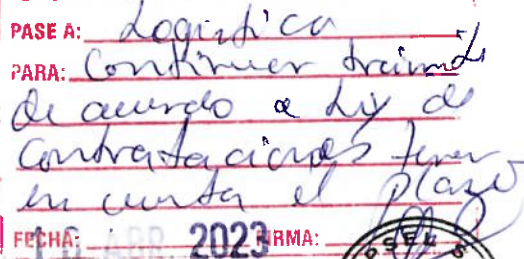 PASE A: Logistica
PARA: Continuer tramite
de acuerdo a Ley de
Contrataciones tener
en cuenta el plazo
FECHA: 10 ABR. 2023 FIRMA: